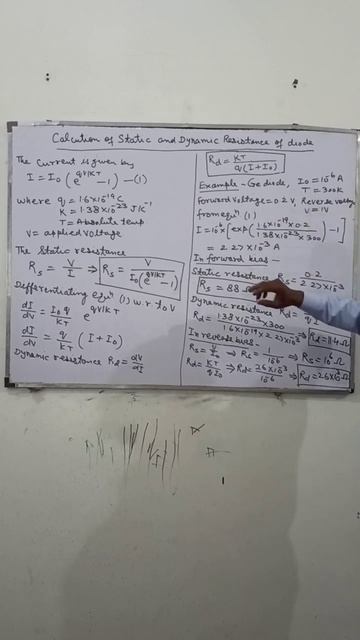 Calcution of Static and Dynamic Resistance of diode
The Current is given by
I = I₀ (e^(qV/KT) − 1) —(1)
where q = 1.6×10⁻¹⁹ C
K = 1.38×10⁻²³ J/K⁻¹
T = Absolute temp
V = applied voltage
The Static resistance
R_s = V/I ⇒ R_s = V / I₀(e^(qV/KT) − 1)
Differentiating equⁿ (1) w.r. to V
dI/dV = I₀q/KT e^(qV/KT)
dI/dV = q/KT (I + I₀)
Dynamic resistance R_d = dV/dI
R_d = KT / q(I + I₀)
Example - Ge diode, I₀ = 10⁻⁶ A
T = 300K
forward voltage = 0.2V, Reverse voltage
V = 1V
from equⁿ (1)
I = 10⁻⁶ × [exp(1.6×10⁻¹⁹×0.2 / 1.38×10⁻²³×300) − 1]
= 2.27×10⁻³ A
In forward bias -
Static resistance R_s = 0.2 / 2.27×10⁻³
R_s = 88
Dynamic resistance
R_d = 1.38×10⁻²³×300 / 1.6×10⁻¹⁹×2.27×10⁻³ ⇒ R_d = 11.4 Ω
In reverse bias -
R_s = V/I₀ ⇒ R_s = 1/10⁻⁶ ⇒ R_s = 10⁶ Ω
R_d = KT/qI₀ ⇒ R_d = 26×10⁻³/10⁻⁶ ⇒ R_d = 26×10³ Ω